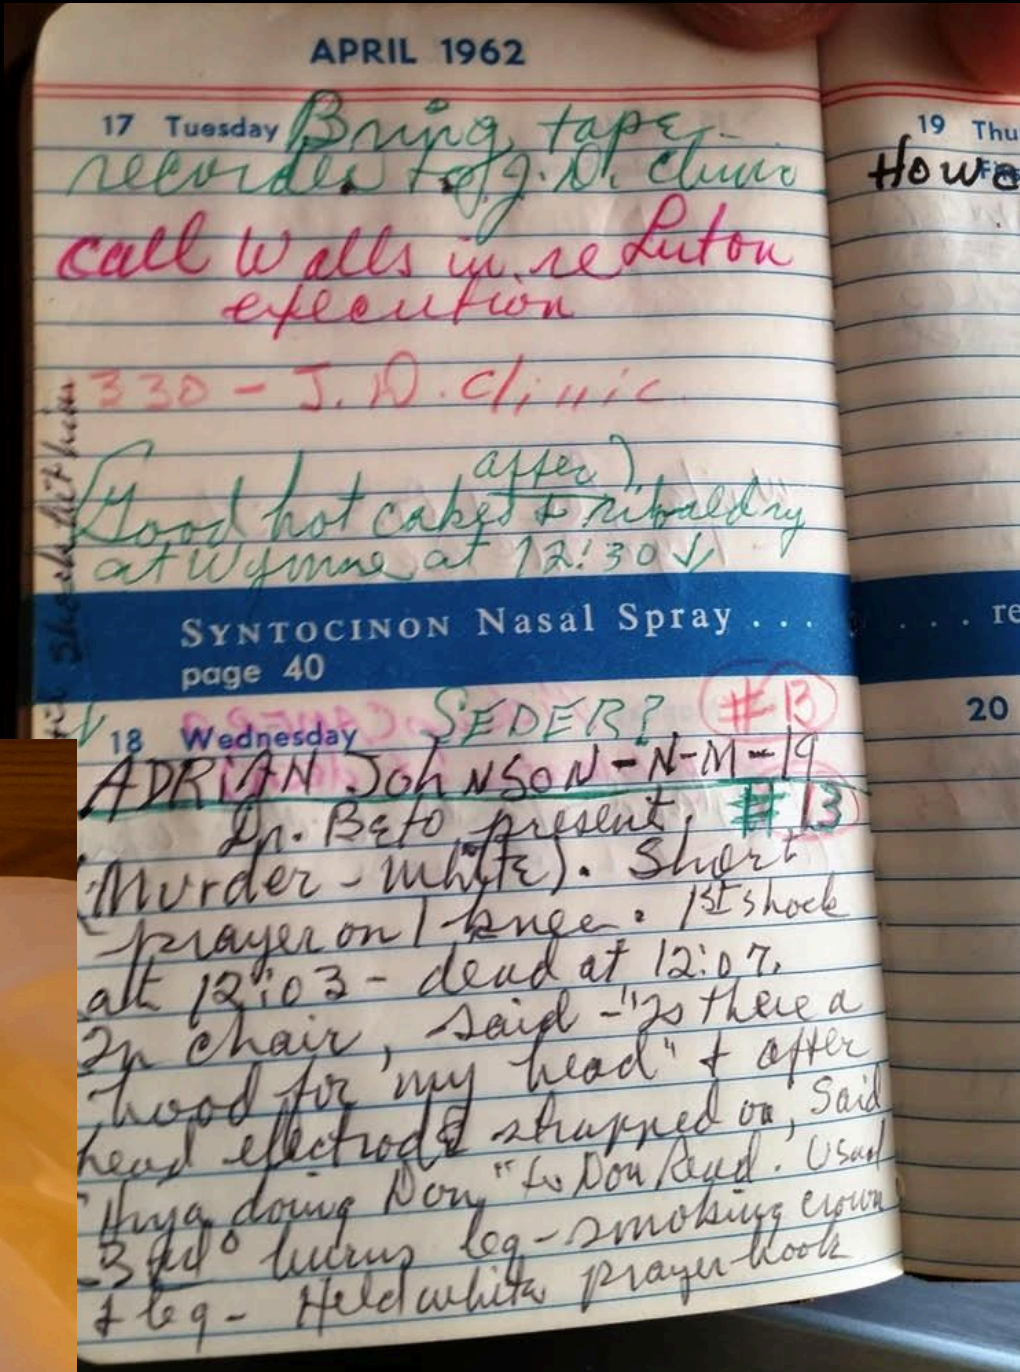 APRIL 1962
17 Tuesday Bring tape
recorder to J. D. Clinic
Call Walls in re Luton
execution
330 - J. D. Clinic
after)
Good hot cakes & ribaldry
at Wynne at 12:30
SYNTOCINON Nasal Spray . . .
page 40
SEDER? #13
18 Wednesday
ADRIAN JOHNSON-N-M-19
Dr. Beto present. #13
(Murder - white). Short
prayer on 1 knee. 1st shock
at 12:03 - dead at 12:07.
In chair, said - "Is there a
hood for my head" & after
head electrode strapped on, Said
"Hya doing Don" to Don Reid. Usual
3rd° burns leg - smoking crown
& leg - Held white prayer book
19 Thu
Howe
. . . . re
20